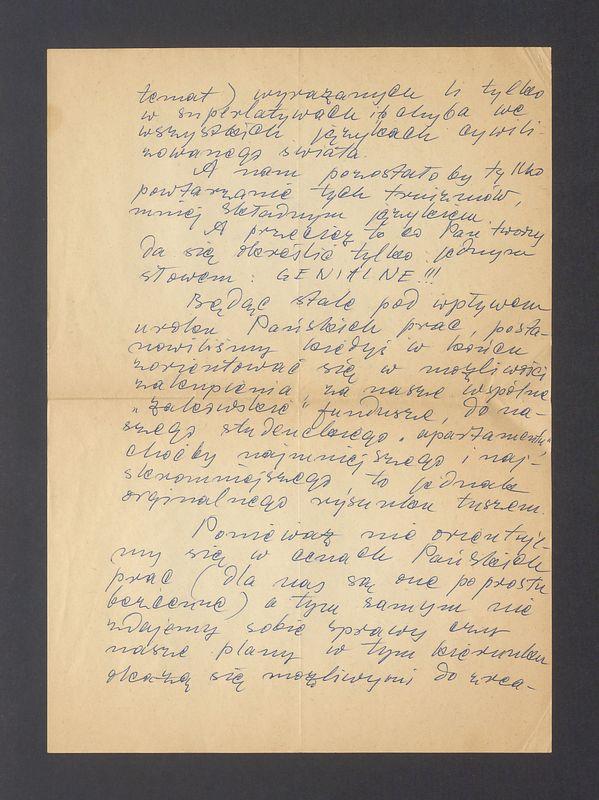 temat) wyrażanych li tylko
w superlatywach i chyba we
wszystkich językach cywili-
zowanego świata.
A nam pozostało by tylko
powtarzanie tych truizmów,
mniej składnym językiem.
A przecież to co Pan tworzy
da się określić tylko jednym
słowem: GENIALNE!!!
Będąc stale pod wpływem
uroku Pańskich prac, posta-
nowiliśmy kiedyś w końcu
zorientować się w możliwości
zakupienia za nasze wspólne
„żakowskie" fundusze, do na-
szego studenckiego „apartamentu",
choćby najmniejszego i naj-
skromniejszego, to jednak
orginalnego rysunku tuszem.
Ponieważ nie orientuje-
my się w cenach Pańskich
prac (dla nas są one po prostu
bezcenne) a tym samym nie
zdajemy sobie sprawy czy
nasze plany w tym kierunku
okażą się możliwymi do zrea-